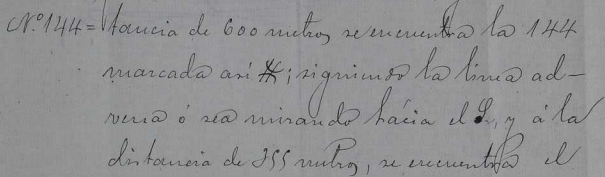 Nº 144= tancia de 600 metros se encuentra la 144
marcada asi #; siguiendo la linea ad-
versa ó sea mirando hácia el S., y á la
distancia de 355 metros, se encuentra el